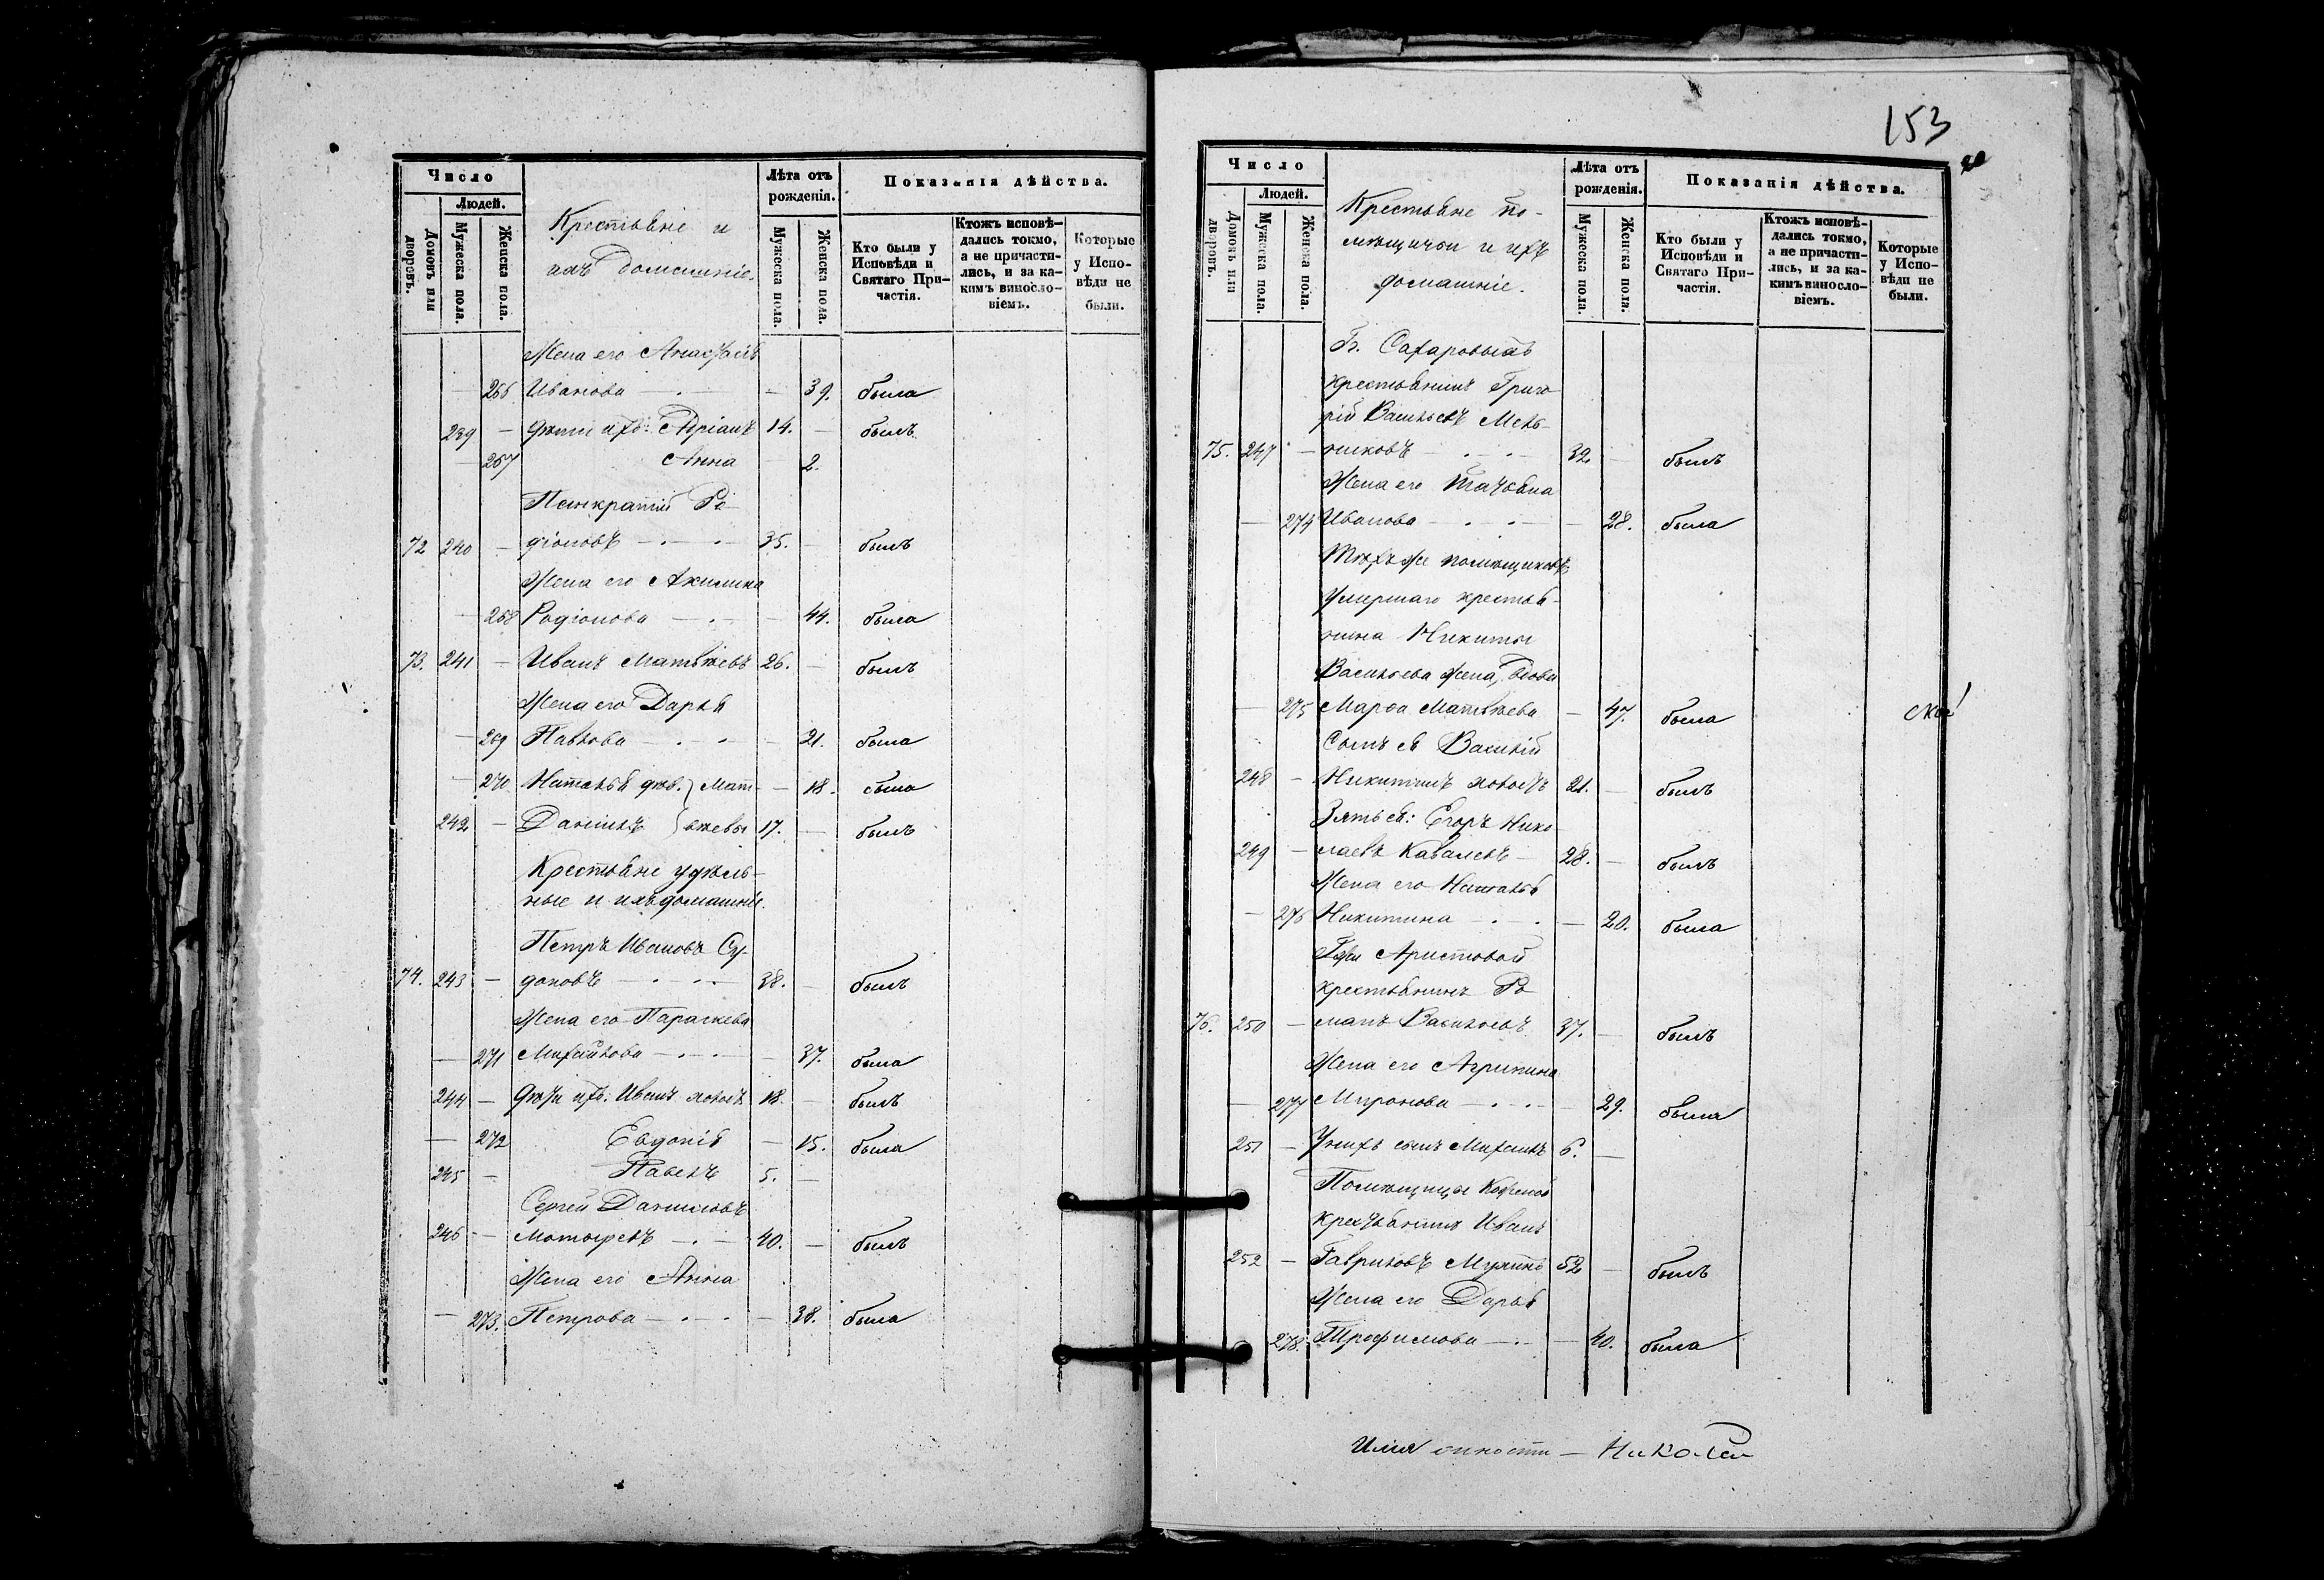 Число
Людей.
Домовъ или дворовъ.
Мужеска пола.
Женска пола.
Крестьяне и
ихъ домашніе.
Лѣта отъ рожденія.
Мужеска пола.
Женска пола.
Показанія дѣйства.
Кто были у Исповѣди и Святаго Причастія.
Ктожъ исповѣдались токмо, а не причастились, и за какимъ винословіемъ.
Которые у Исповѣди не были.
Жена его Анастасія
266 Иванова 39. была
239 Дѣти ихъ: Адріанъ 14. былъ
267 Анна 2.
Панкратій Ро-
72 240 діоновъ 35. былъ
Жена его Акилина
268 Родіонова 44. была
73. 241 Иванъ Матвѣевъ 26. былъ
Жена его Дарья
269 Павлова 21. была
270 Наталья дѣв. } Мат- 18. была
242 Даніилъ } вѣевы 17. былъ
Крестьяне удѣль-
ные и ихъ домашніе.
Петръ Ивановъ Су-
74. 243 даковъ 38. былъ
Жена его Параскева
271 Михайлова 37. была
244 Дѣти ихъ: Иванъ холостъ 18. былъ
272 Евдокія 15. была
245 Павелъ 5.
Сергей Даниловъ
246 40. былъ
Жена его Анна
273. Петрова 38. была
153
Число
Людей.
Домовъ или дворовъ.
Мужеска пола.
Женска пола.
Крестьяне по-
мѣщичьи и ихъ
домашніе.
Лѣта отъ рожденія.
Мужеска пола.
Женска пола.
Показанія дѣйства.
Кто были у Исповѣди и Святаго Причастія.
Ктожъ исповѣдались токмо, а не причастились, и за какимъ винословіемъ.
Которые у Исповѣди не были.
Гг. Сахаровыхъ
крестьянинъ Григо-
рій Васильевъ Мель-
75. 247 никовъ 32 былъ
Жена его Татьяна
274 Иванова 28. была
Тѣхъ же помѣщиковъ
умершаго крестья-
нина Никиты
Васильева жена, вдова
275 Марѳа Матвѣева 47. была
Сынъ ея Василій
248 Никитинъ холостъ 21. былъ
Зять ея: Егоръ Нико-
249 лаевъ Кавалевъ 28. былъ
Жена его Наталья
276 Никитина 20. была
Г-жи Аристовой
крестьянинъ Ро-
76. 250 манъ Васильевъ 37. былъ
Жена его Агрипина
277 Миронова 29. была
251 У нихъ сынъ Михаилъ 6.
Помѣщицы
крестьянинъ Иванъ
252 Гавриловъ 52 былъ
Жена его Дарья
278. Трофимова 40. была